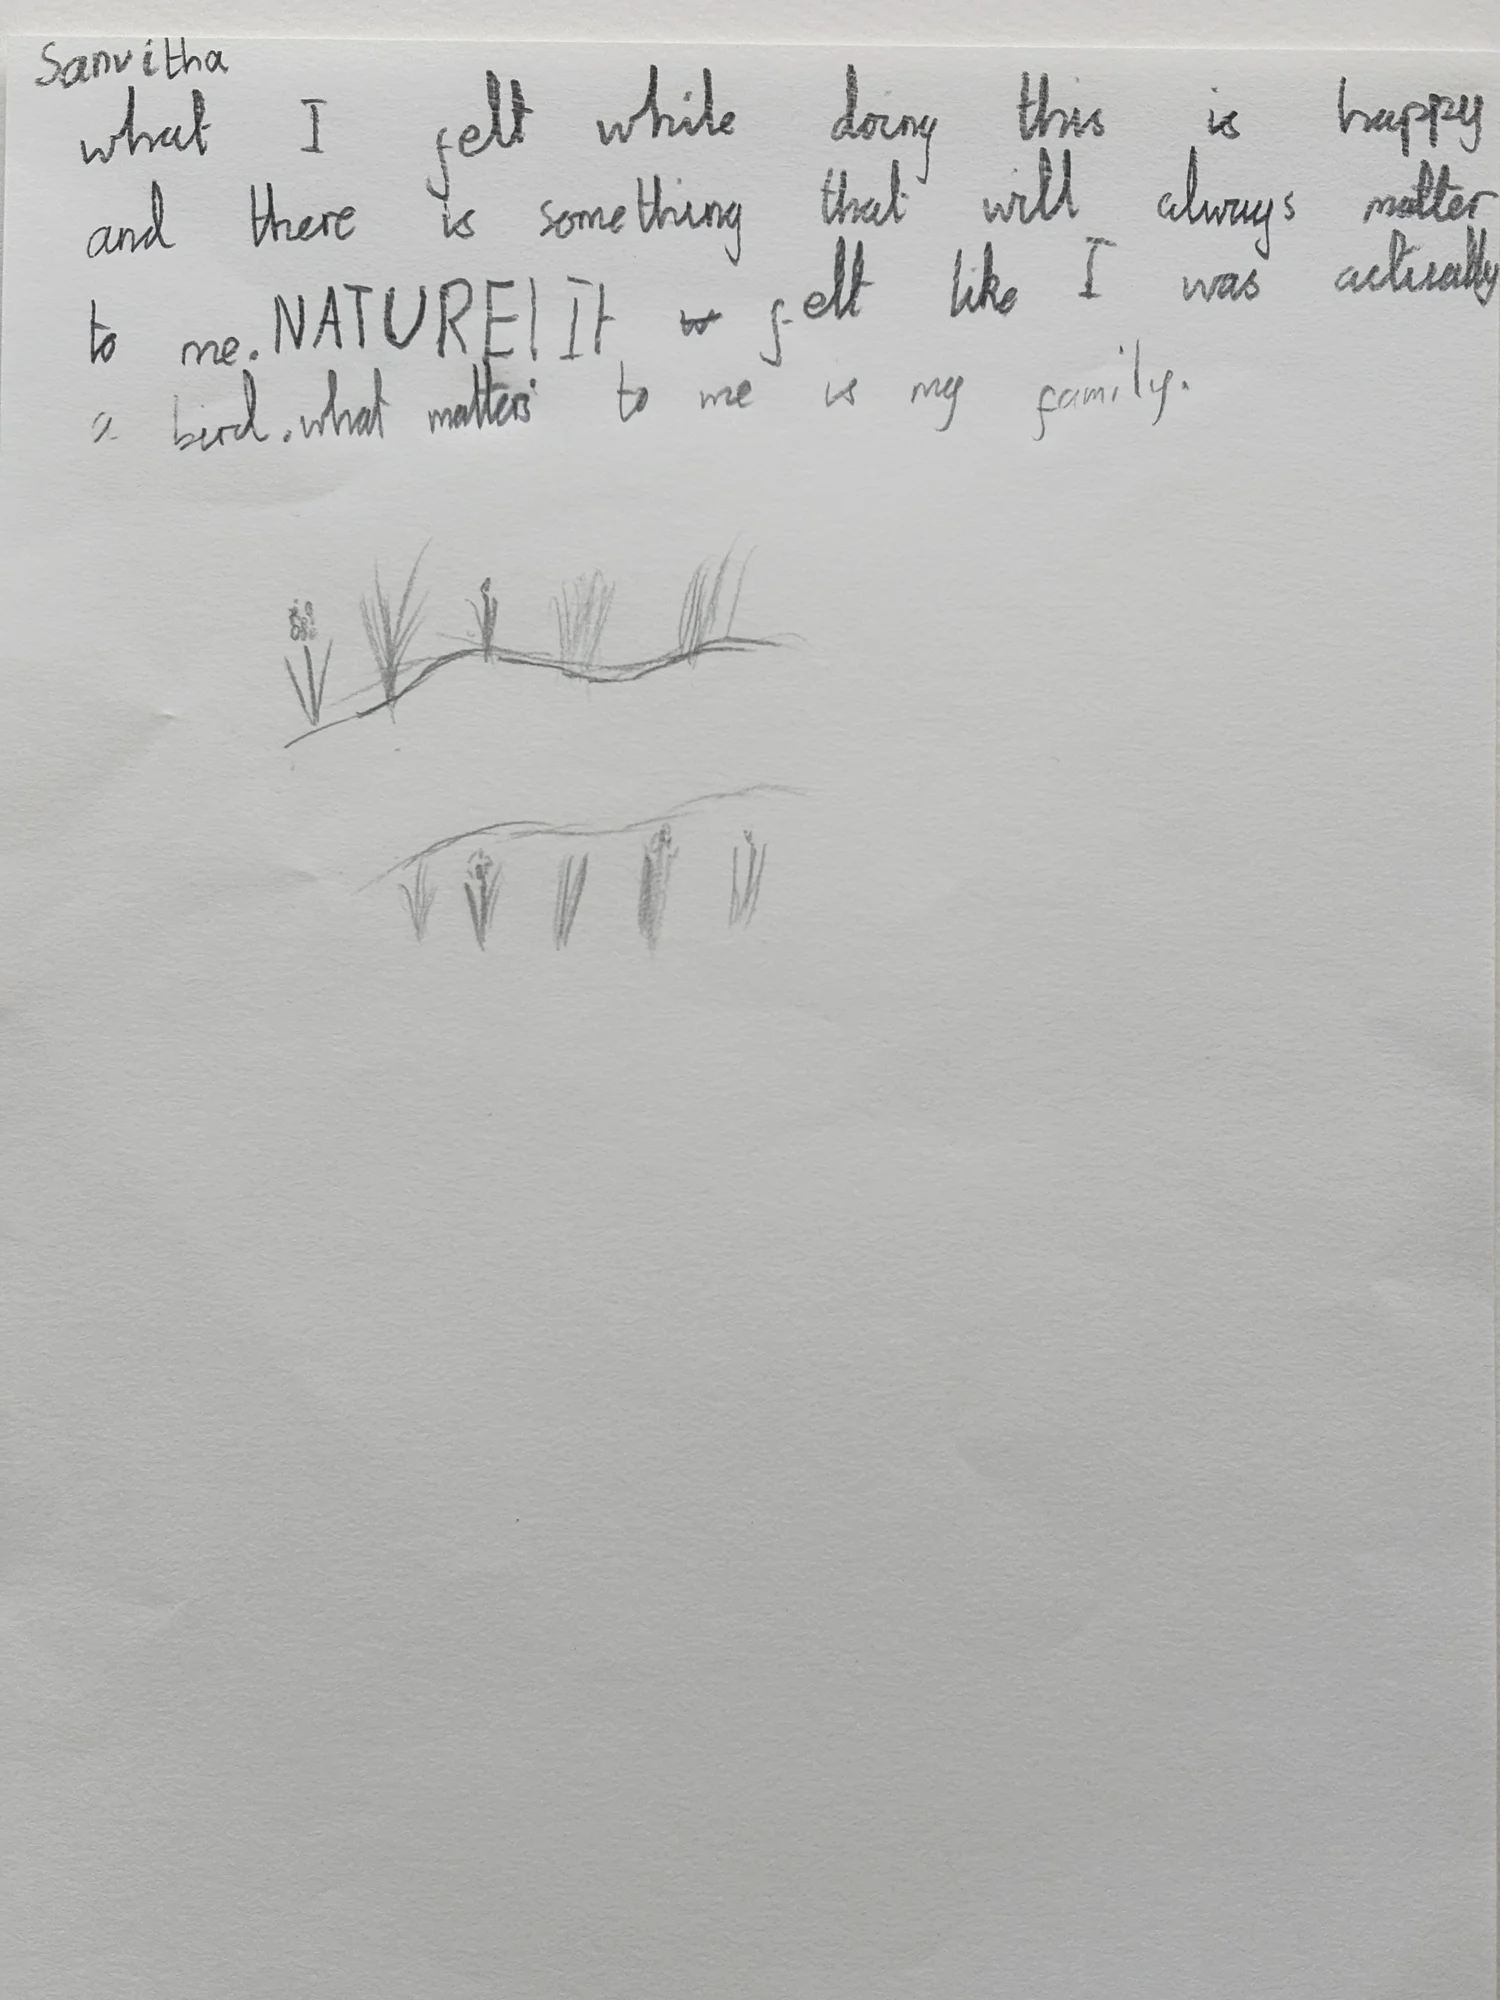 Sanvitha
what I felt while doing this is happy
and there is something that will always matter
to me. NATURE! It felt like I was actually
a bird. what matters to me is my family.